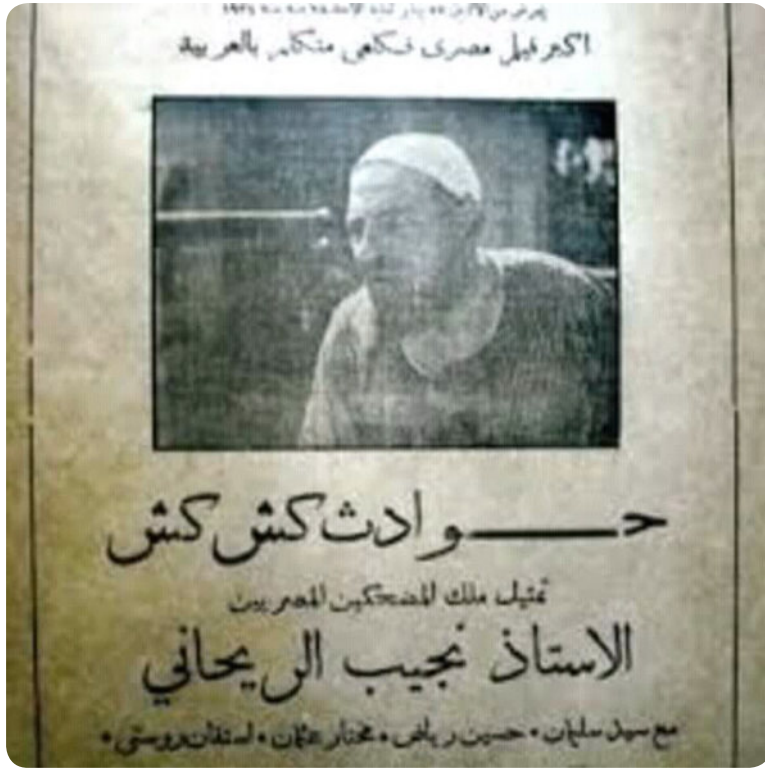 يعرض من الاثنين
اكبر فيلم مصرى فكاهى متكلم بالعربية
حوادث كش كش
تمثيل ملك المضحكين المصريين
الاستاذ نجيب الريحاني
مع سيد سليمان • حسين رياض • مختار عثمان • استفان روستى •